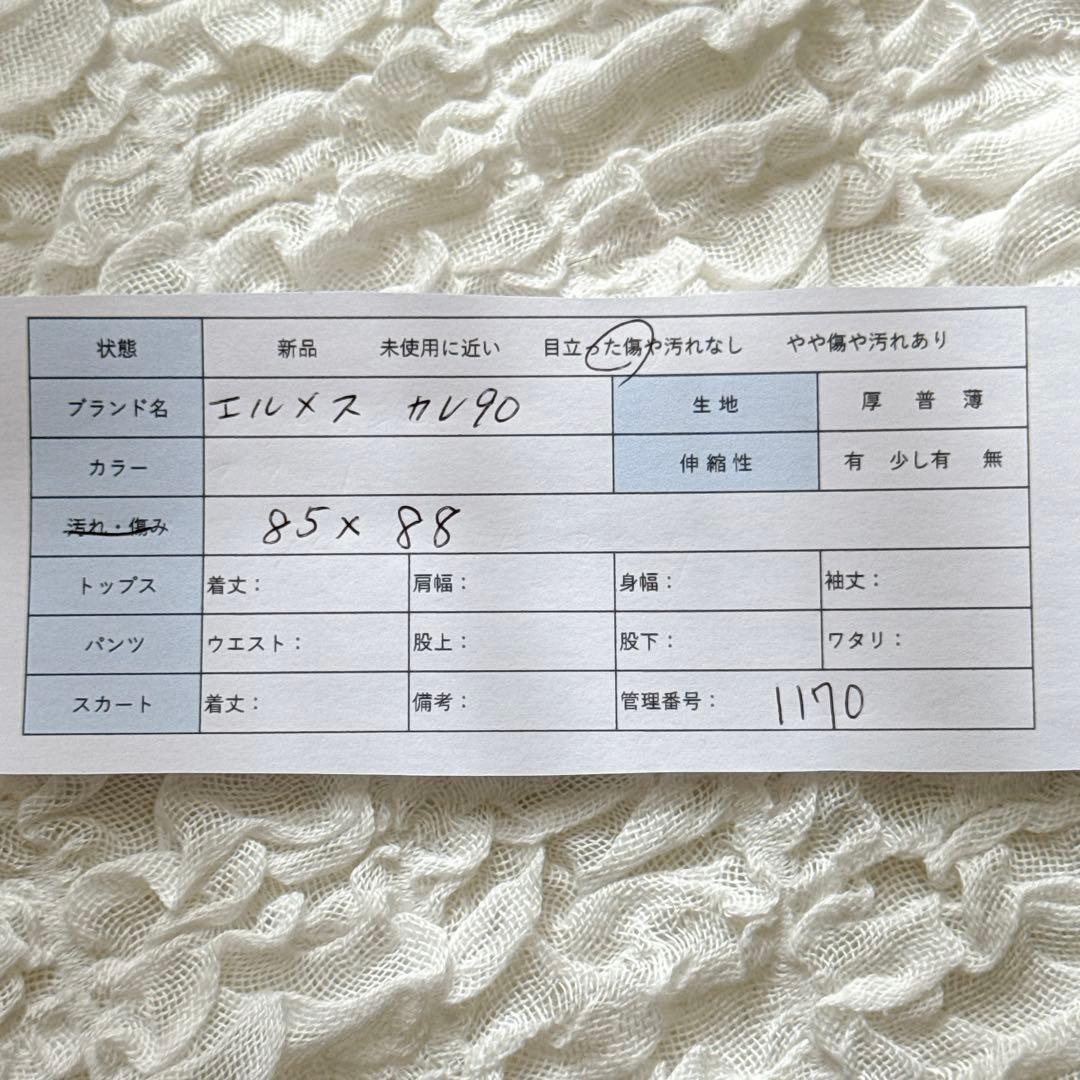 状態 新品 未使用に近い 目立った傷や汚れなし やや傷や汚れあり
ブランド名 エルメス カレ90 生地 厚 普 薄
カラー 伸縮性 有 少し有 無
汚れ・傷み 85×88
トップス 着丈： 肩幅： 身幅： 袖丈：
パンツ ウエスト： 股上： 股下： ワタリ：
スカート 着丈： 備考： 管理番号： 1170